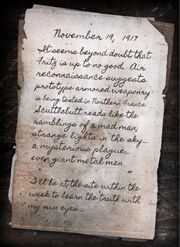 November 19, 1917
It seems beyond doubt that
Fritz is up to no good. Air
reconnaissance suggests
prototype armored weaponry
is being tested in Northern France.
Scuttlebutt reads like the
ramblings of a mad man,
strange lights in the sky...
a mysterious plague...
even giant metal men.
I'll be at the site within the
week to learn the truth with
my own eyes...